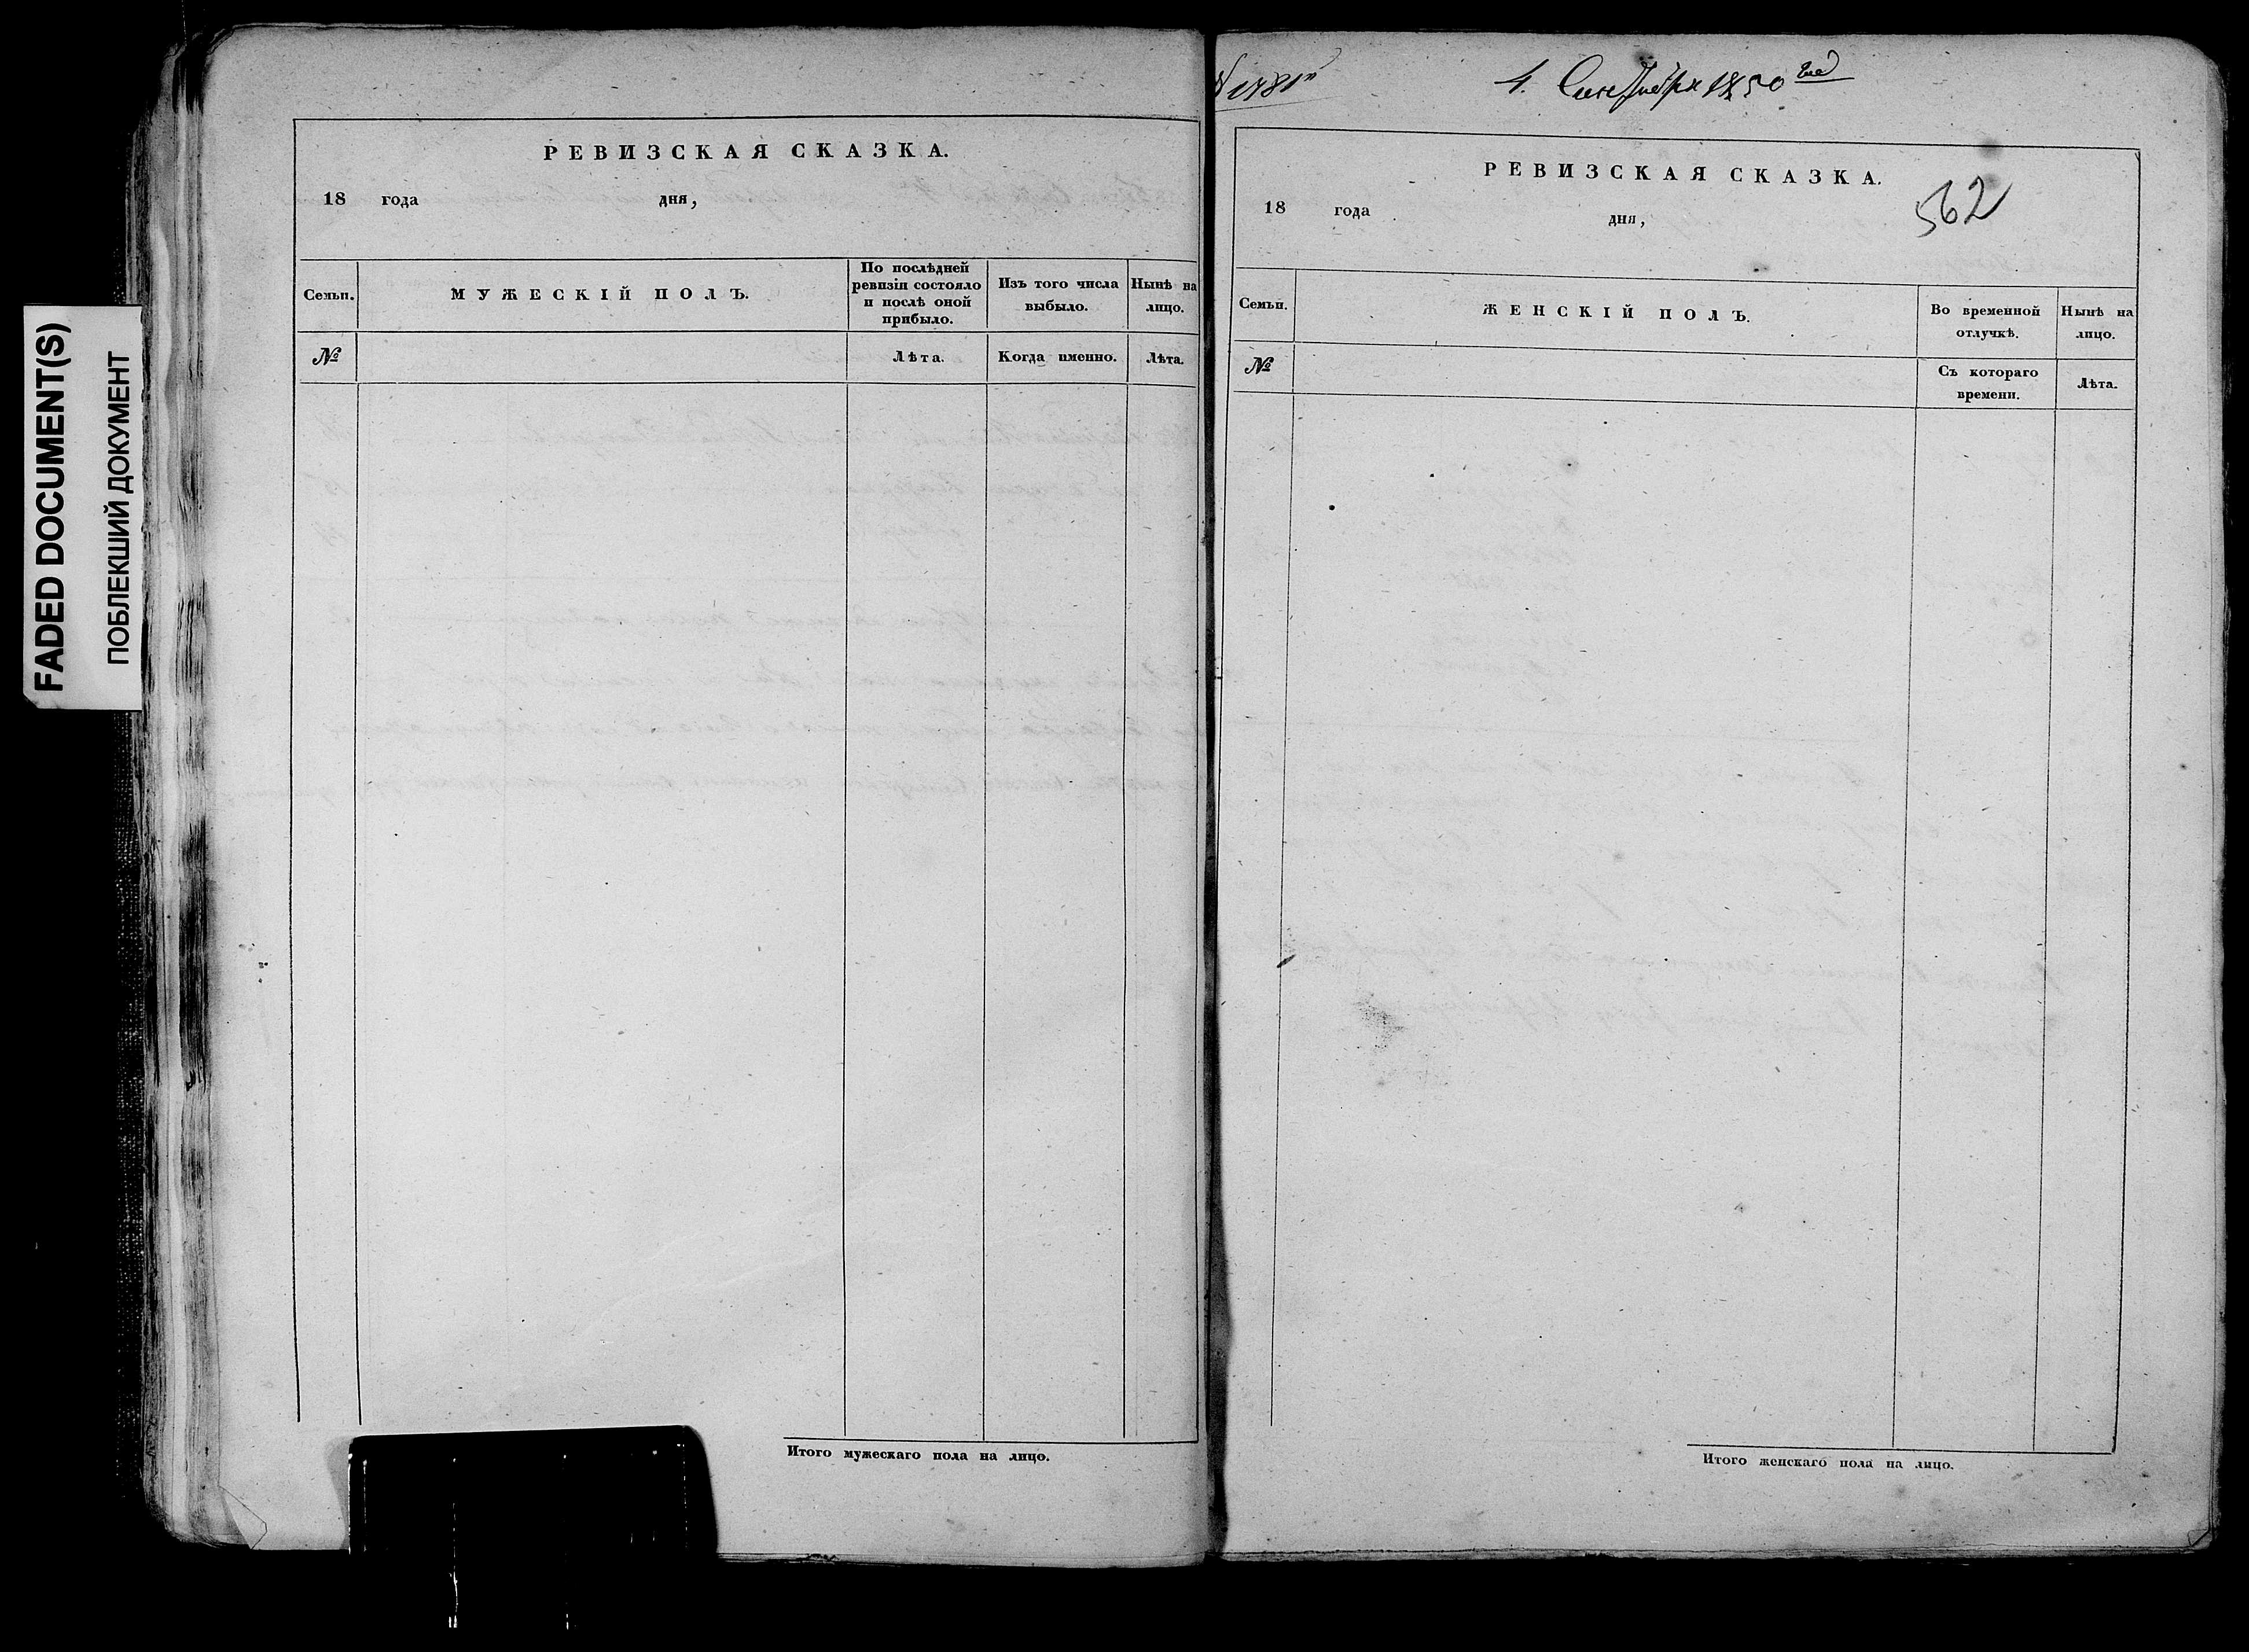 FADED DOCUMENT(S)
ПОБЛЕКШИЙ ДОКУМЕНТ
РЕВИЗСКАЯ СКАЗКА.
18 года дня,
Семьи.
МУЖЕСКІЙ ПОЛЪ.
По послѣдней
ревизіи состояло
и послѣ оной
прибыло.
Изъ того числа
выбыло.
Нынѣ на
лицо.
№
Лѣта.
Когда именно.
Лѣта.
Итого мужескаго пола на лицо.
4. Сентября 1850 год
РЕВИЗСКАЯ СКАЗКА.
562
18 года дня,
Семьи.
ЖЕНСКІЙ ПОЛЪ.
Во временной
отлучкѣ.
Нынѣ на
лицо.
№
Съ котораго
времени.
Лѣта.
Итого женскаго пола на лицо.